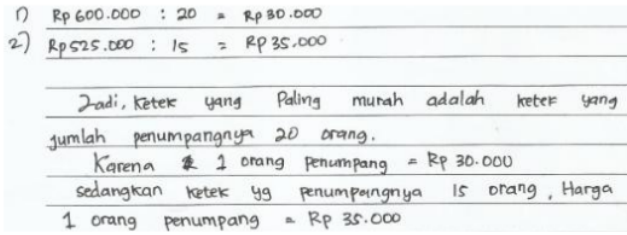 1) Rp 600.000 : 20 = Rp 30.000
2) Rp 525.000 : 15 = Rp 35.000
Jadi, ketek yang Paling murah adalah ketek yang
jumlah penumpangnya 20 orang.
Karena 1 orang penumpang = Rp 30.000
sedangkan ketek yg penumpangnya 15 orang, Harga
1 orang penumpang = Rp 35.000